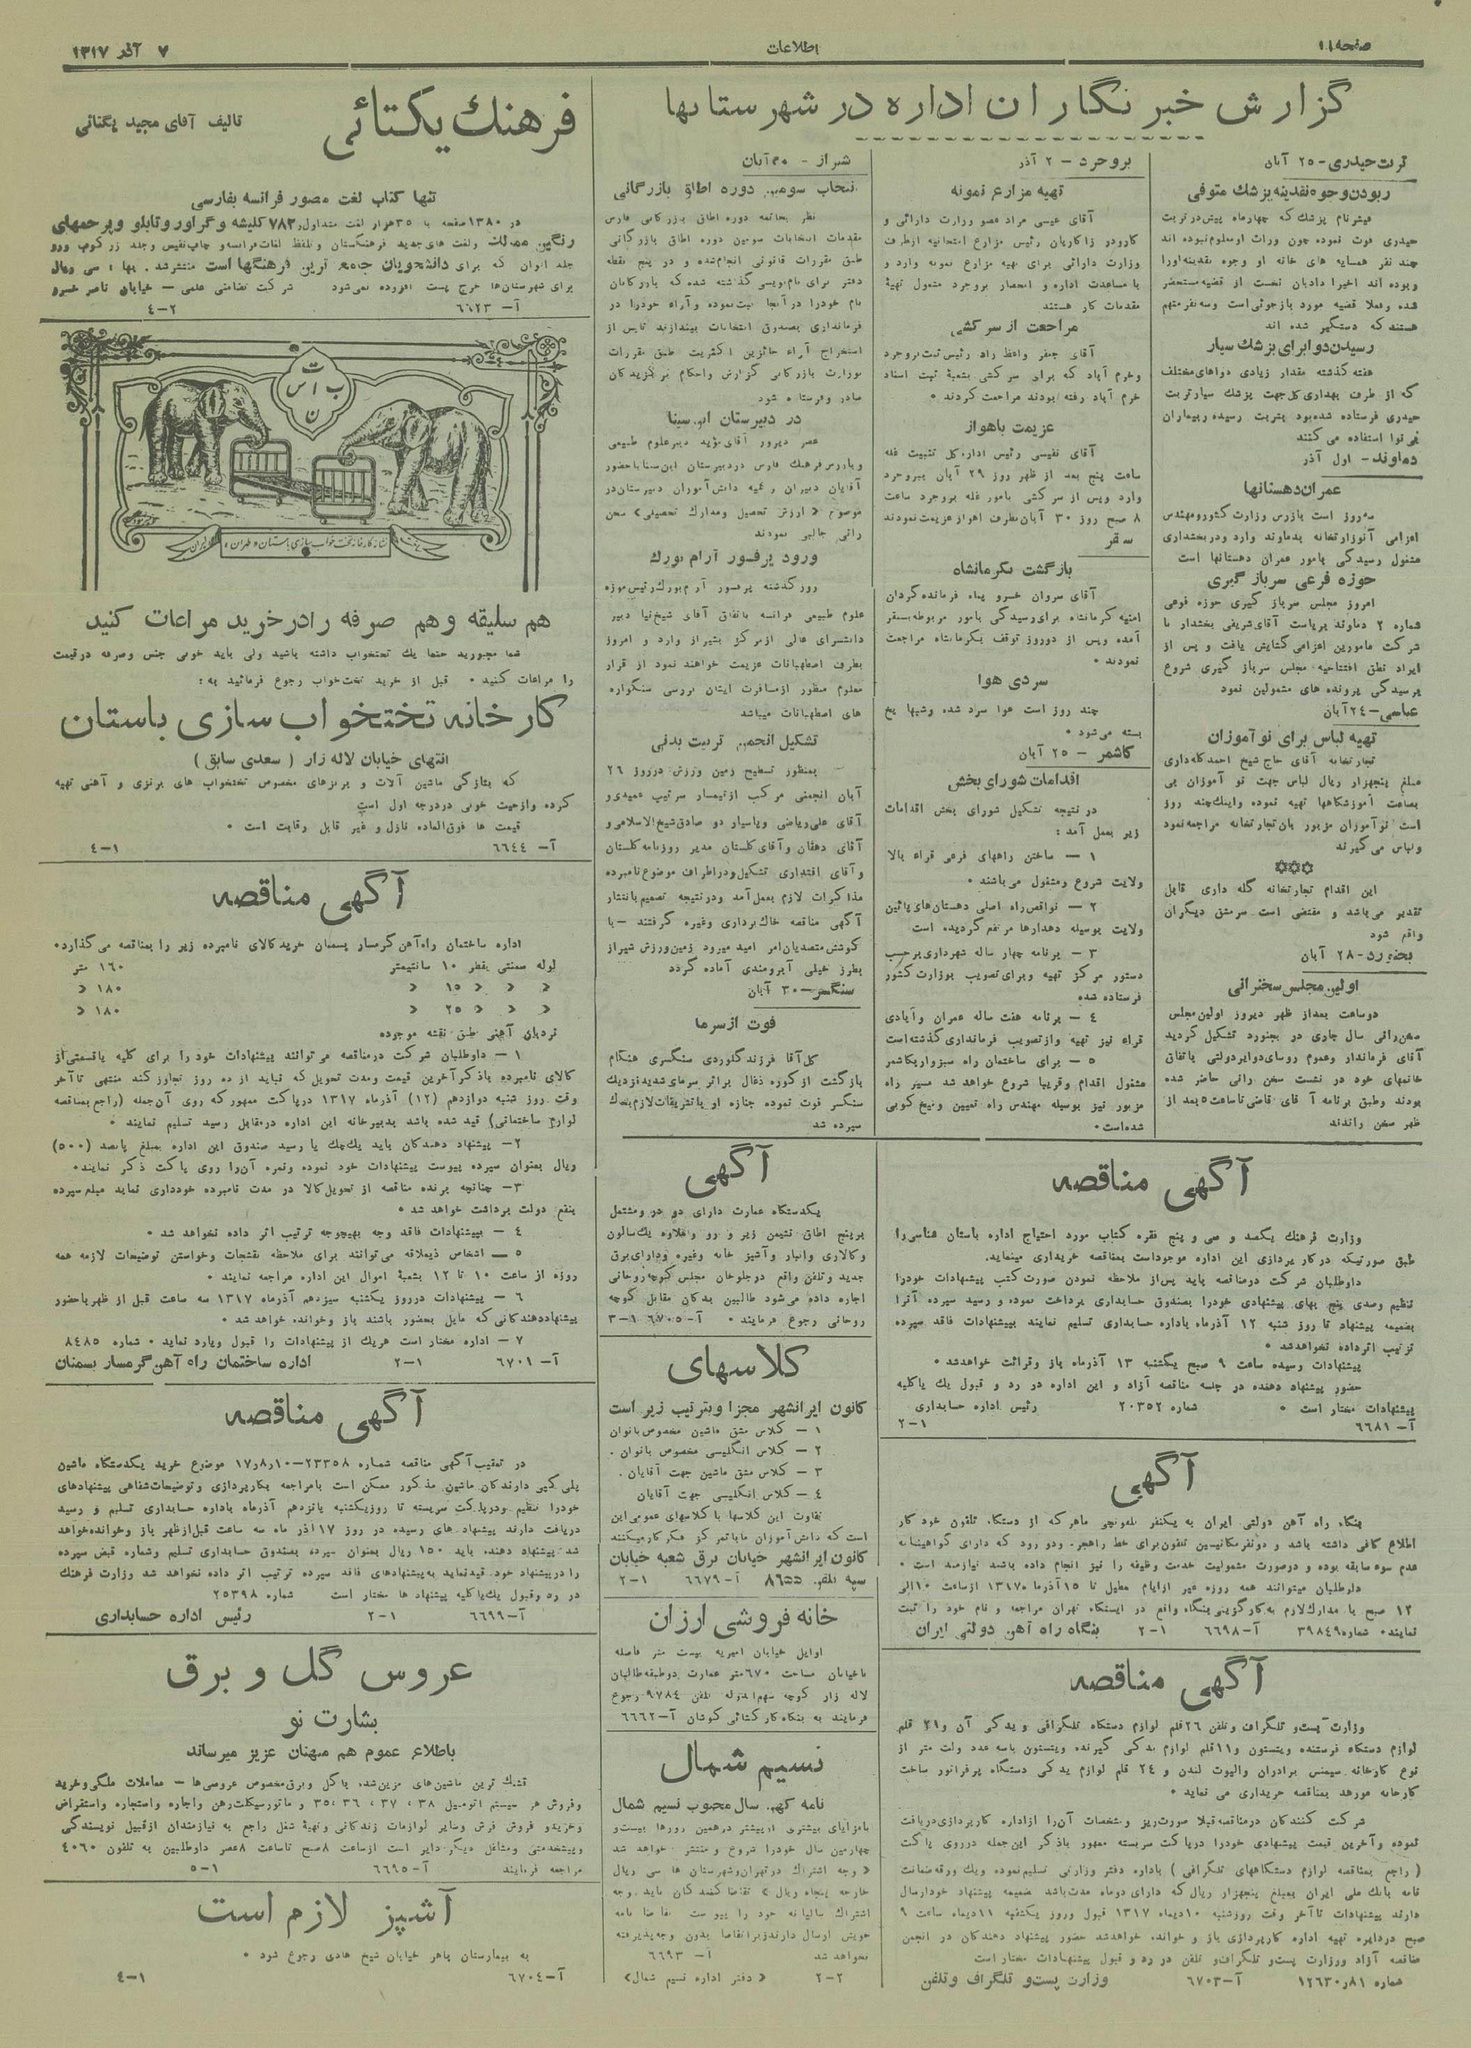 صفحه ۱۱
اطلاعات
۷ آذر ۱۳۱۷
گزارش خبرنگاران اداره در شهرستانها
تربت حیدری - ۲۵ آبان
ربودن وجوه نقدینه پزشك متوفی
حیدری فوت نموده چون وراث او معلوم نبوده اند
چند نفر همسایه های خانه او وجوه نقدینه او را
ربوده اند اخیراً دادبان نخست از قضیه مستحضر
شده و فعلا قضیه مورد بازجوئی است و سه نفر متهم
هستند که دستگیر شده اند
رسیدن دوا برای پزشك سیار
هفته گذشته مقدار زیادی دواهای مختلف
که از طرف بهداری کل جهت پزشك سیار تربت
حیدری فرستاده شده بود بتربت رسیده و بیماران
دماوند - اول آذر
عمران دهستانها
سه روز است بازرس وزارت کشور و مهندس
اعزامی آنوزارتخانه بدماوند وارد و در بخشداری
مشغول رسیدگی بامور عمران دهستانها است
حوزه فرعی سرباز گیری
امروز مجلس سرباز گیری حوزه فرعی
شماره ۲ دماوند بریاست آقای شریفی بخشدار با
شرکت مامورین اعزامی گشایش یافت و پس از
ایراد نطق افتتاحیه مجلس سرباز گیری شروع
برسیدگی پرونده های مشمولین نمود
عباسی - ۲۴ آبان
تهیه لباس برای نو آموزان
تجارتخانه آقای حاج شیخ احمد گله داری
مبلغ پنجهزار ریال لباس جهت نو آموزان بی
بضاعت آموزشگاهها تهیه نموده و اینك چند روز
است نو آموزان مزبور بآن تجارتخانه مراجعه نمود
ولباس می گیرند
این اقدام تجارتخانه گله داری قابل
تقدیر می باشد و مقتضی است سرمشق دیگران
واقع شود
بجنورد - ۲۸ آبان
اولین مجلس سخنرانی
دو ساعت بعد از ظهر دیروز اولین مجلس
سخن رانی سال جاری در بجنورد تشکیل گردید
آقای فرماندار و عموم روسای دوایر دولتی باتفاق
خانمهای خود در نشست سخن رانی حاضر شده
بودند و طبق برنامه آقای قاضی تا ساعت ۵ بعد از
ظهر سخن راندند
بروجرد - ۲ آذر
تهیه مزارع نمونه
آقای عیسی مراد عضو وزارت دارائی و
وزارت دارائی برای تهیه مزارع نمونه وارد و
با مساعدت اداره و انحصار بروجرد مشغول تهیه
مقدمات کار هستند
مراجعت از سرکشی
آقای جعفر واعظ راد رئیس ثبت بروجرد
و خرم آباد که برای سرکشی بشعبه ثبت اسناد
خرم آباد رفته بودند مراجعت کردند
عزیمت باهواز
آقای نفیسی رئیس اداره کل تثبیت غله
ساعت پنج بعد از ظهر روز ۲۹ آبان ببروجرد
وارد و پس از سرکشی بامور غله بروجرد ساعت
۸ صبح روز ۳۰ آبان بطرف اهواز عزیمت نمودند
سقز
بازگشت بکرمانشاه
آقای سروان خسرو پناه فرمانده گردان
امنیه کرمانشاه برای رسیدگی بامور مربوطه بسقز
آمده و پس از دو روز توقف بکرمانشاه مراجعت
نمودند
سردی هوا
چند روز است هوا سرد شده و شبها یخ
بسته می شود
کاشمر - ۲۵ آبان
اقدامات شورای بخش
در نتیجه تشکیل شورای بخش اقدامات
زیر بعمل آمد:
۱ - ساختن راههای فرعی قراء بالا
ولایت شروع و مشغول می باشند
۲ - نواقص راه اصلی دهستان های پائین
ولایت بوسیله دهدارها مرتفع گردیده است
۳ - برنامه چهار ساله شهرداری بر حسب
دستور مرکز تهیه و برای تصویب بوزارت کشور
فرستاده شده
۴ - برنامه هفت ساله عمران و آبادی
قراء نیز تهیه و از تصویب فرمانداری گذشته است
۵ - برای ساختمان راه سبزوار بکاشمر
مشغول اقدام و قریباً شروع خواهد شد مسیر راه
مزبور نیز بوسیله مهندس راه تعیین و میخ کوبی
شده است
شیراز - ۳۰ آبان
انتخاب سومین دوره اطاق بازرگانی
نظر بخاتمه دوره اطاق بازرگانی فارس
مقدمات انتخابات سومین دوره اطاق بازرگانی
طبق مقررات قانونی انجام شده و در پنج نقطه
دفتر برای نام نویسی گذاشته شده که بازرگانان
نام خود را در آنجا ثبت نموده و آراء خود را در
فرمانداری بصندوق انتخابات بیندازند تا پس از
استخراج آراء حائزین اکثریت طبق مقررات
بوزارت بازرگانی گزارش و احکام برگزیدگان
صادر و فرستاده شود
در دبیرستان ابن سینا
عصر دیروز آقای مؤید دبیر علوم طبیعی
و بازرس فرهنگ فارس در دبیرستان ابن سینا با حضور
آقایان دبیران و کلیه دانش آموران دبیرستان در
موضوع « ارزش تحصیل و مدارك تحصیلی » سخن
رانی جالبی نمودند
ورود پرفسور آرام بورك
روز گذشته پرفسور آرام بورك رئیس موزه
علوم طبیعی فرانسه باتفاق آقای شیخ نیا دبیر
دانشسرای عالی از مرکز بشیراز وارد و امروز
بطرف اصطهبانات عزیمت خواهند نمود از قرار
معلوم منظور از مسافرت ایشان بررسی سنگواره
های اصطهبانات میباشد
تشکیل انجمن تربیت بدنی
بمنظور تسطیح زمین ورزش در روز ۲۶
آبان انجمنی مرکب از تیمسار سرتیپ عمیدی و
آقای علی ریاضی و پاسیار دو صادق شیخ الاسلامی و
آقای دهقان و آقای گلستان مدیر روزنامه گلستان
و آقای اقتداری تشکیل و در اطراف موضوع نامبرده
مذاکرات لازم بعمل آمد و در نتیجه تصمیم بانتشار
آگهی مناقصه خاك برداری و غیره گرفتند - با
کوشش متصدیان امر امید میرود زمین ورزش شیراز
بطرز خیلی آبرومندی آماده گردد
سنگسر - ۳۰ آبان
فوت از سرما
گل آقا فرزند گلوردی سنگسری هنگام
بازگشت از کوره ذغال براثر سرمای شدید نزدیك
سنگسر فوت نموده جنازه او با تشریفات لازم بخاك
سپرده شد
فرهنك یکتائی
تالیف آقای مجید یکتائی
تنها کتاب لغت مصور فرانسه بفارسی
در ۱۳۸۰ صفحه با ۳۵ هزار لغت متداول و ۷۸۳ کلیشه و گراور و تابلو و پرچمهای
جلد الوان که برای دانشجویان جامع ترین فرهنگها است منتشر شد . بها : سی ریال
برای شهرستان ها خرج پست افزوده نمی شود شرکت تضامنی علمی - خیابان ناصر خسرو
آ- ۶۶۲۳ ۲-۴
باستان
نشانه کارخانه تختخواب سازی باستان « طهران »
هم سلیقه و هم صرفه را در خرید مراعات کنید
شما مجبورید حتما یك تختخواب داشته باشید ولی باید خوبی جنس و صرفه در قیمت
را مراعات کنید . قبل از خرید تخت خواب رجوع فرمائید به :
کارخانه تختخواب سازی باستان
انتهای خیابان لاله زار ( سعدی سابق )
که بتازگی ماشین آلات و برنزهای مخصوص تختخواب های برنزی و آهنی تهیه
کرده و از حیث خوبی در درجه اول است
قیمت ها فوق العاده نازل و غیر قابل رقابت است
آ- ۶۶۴۴ ۱-۴
آگهی مناقصه
اداره ساختمان راه آهن گرمسار بسمنان خرید کالای نامبرده زیر را بمناقصه می گذارد
لوله سمنتی بقطر ۱۰ سانتیمتر ۱۶۰ متر
« « « ۱۵ « ۱۸۰ «
« « « ۲۵ « ۱۸۰ «
نردبان آهنی طبق نقشه موجوده
۱ - داوطلبان شرکت در مناقصه می توانند پیشنهادات خود را برای کلیه یا قسمتی از
کالای نامبرده با ذکر آخرین قیمت و مدت تحویل که نباید از ده روز تجاوز کند منتهی تا آخر
وقت روز شنبه دوازدهم (۱۲) آذرماه ۱۳۱۷ در پاکت ممهور که روی آن جمله (راجع بمناقصه
لوازم ساختمانی) قید شده باشد بدبیرخانه این اداره در مقابل رسید تسلیم نمایند
۲- پیشنهاد دهندگان باید یك چك یا رسید صندوق این اداره بمبلغ پانصد (۵۰۰)
ریال بعنوان سپرده پیوست پیشنهادات خود نموده و نمره آن را روی پاکت ذکر نمایند
۳- چنانچه برنده مناقصه از تحویل کالا در مدت نامبرده خودداری نماید مبلغ سپرده
بنفع دولت برداشت خواهد شد
۴ - بپیشنهادات فاقد وجه بهیچوجه ترتیب اثر داده نخواهد شد
۵ - اشخاص ذیعلاقه می توانند برای ملاحظه نقشجات و خواستن توضیحات لازمه همه
روزه از ساعت ۱۰ تا ۱۲ بشعبه اموال این اداره مراجعه نمایند
۶ - پیشنهادات در روز یکشنبه سیزدهم آذرماه ۱۳۱۷ سه ساعت قبل از ظهر با حضور
پیشنهاد دهندگانی که مایل بحضور باشند باز و خوانده خواهد شد
۷ - اداره مختار است هر یك از پیشنهادات را قبول و یا رد نماید شماره ۸۴۸۵
آ- ۶۷۰۱ ۱-۲ اداره ساختمان راه آهن گرمسار بسمنان
آگهی مناقصه
در تعقیب آگهی مناقصه شماره ۲۳۳۵۸-۱۷٫۸٫۱۰ موضوع خرید یکدستگاه ماشین
پلی کپی دارندگان ماشین مذکور ممکن است با مراجعه بکارپردازی و توضیحات شفاهی پیشنهادهای
خود را تنظیم و در پاکت سربسته تا روز یکشنبه پانزدهم آذرماه باداره حسابداری تسلیم و رسید
دریافت دارند پیشنهادهای رسیده در روز ۱۷ آذر ماه سه ساعت قبل از ظهر باز و خوانده خواهد
شد پیشنهاد دهنده باید ۱۵۰ ریال بعنوان سپرده بصندوق حسابداری تسلیم و شماره قبض سپرده
را در پیشنهاد خود قید نماید به پیشنهادهای فاقد سپرده ترتیب اثر داده نخواهد شد وزارت فرهنگ
در رد و قبول یك یا کلیه پیشنهاد ها مختار است شماره ۲۵۳۹۸
آ- ۶۶۹۹ ۱-۲ رئیس اداره حسابداری
عروس گل و برق
بشارت نو
باطلاع عموم هم میهنان عزیز میرساند
قشنگ ترین ماشین های مزین شده با گل و برق مخصوص عروسی ها - معاملات ملکی و خرید
و فروش هر سیستم اتومبیل ۳۸ ، ۳۷ ، ۳۶ ، ۳۵ و ماتورسیکلت رهن و اجاره و استجاره و استقراض
و خرید و فروش فرش و سایر لوازمات زندگانی و تهیه شغل راجع به نیازمندان از قبیل نویسندگی
و پیشخدمتی و مشاغل دیگر دایر است از ساعت ۸ صبح تا ساعت ۸ عصر داوطلبین به تلفون ۴۰۶۰
مراجعه فرمایند آ- ۶۶۹۵ ۱-۵
آشپز لازم است
به بیمارستان باهر خیابان شیخ هادی رجوع شود
آ- ۶۷۰۴ ۱-۴
آگهی
یکدستگاه عمارت دارای دو در و مشتمل
بر پنج اطاق نشیمن زیر و رو و بعلاوه یك سالون
و گالاری و انبار و آشپز خانه و غیره و دارای برق
جدید و تلفن واقع در جلو خان مجلس کوچه روحانی
اجاره داده می شود طالبین بدکان مقابل کوچه
روحانی رجوع فرمایند آ- ۶۷۰۵ ۱-۳
کلاسهای
کانون ایرانشهر مجزا و بترتیب زیر است
۱ - کلاس مشق ماشین مخصوص بانوان
۲ - کلاس انگلیسی مخصوص بانوان .
۳ - کلاس مشق ماشین جهت آقایان .
۴ - کلاس انگلیسی جهت آقایان
تفاوت این کلاسها با کلاسهای عمومی این
است که دانش آموزان ما با تمرکز فکر کار میکنند
کانون ایرانشهر خیابان برق شعبه خیابان
سپه تلفن ۸۶۵۵ آ- ۶۶۷۹ ۱-۲
خانه فروشی ارزان
اوایل خیابان امیریه بیست متر فاصله
با خیابان مساحت ۶۷۰ متر عمارت دو طبقه طالبان
لاله زار کوچه سهم الدوله تلفن ۹۷۸۴ رجوع
فرمایند به بنگاه کارگشائی کوشان آ- ۶۶۶۲
نسیم شمال
نامه کهن سال محبوب نسیم شمال
با مزایای بیشتری از پیشتر در همین روزها بیست و
چهارمین سال خود را شروع و منتشر خواهد شد
« وجه اشتراك در تهران و شهرستان ها سی ریال
خارجه پنجاه ریال » تقاضا کنندگان باید وجه
اشتراك سالیانه خود را پیوست تقاضا نامه
خویش ارسال دارند زیرا تقاضا بدون وجه پذیرفته
نخواهد شد آ- ۶۶۹۳
۲-۲ « دفتر اداره نسیم شمال »
آگهی مناقصه
وزارت فرهنك یکصد و سی و پنج نقره کتاب مورد احتیاج اداره باستان شناسی را
طبق صورتیکه در کار پردازی این اداره موجود است بمناقصه خریداری مینماید.
داوطلبان شرکت در مناقصه باید پس از ملاحظه نمودن صورت کتب پیشنهادات خود را
تنظیم و صدی پنج بهای پیشنهادی خود را بصندوق حسابداری پرداخت نموده و رسید سپرده آنرا
بضمیمه پیشنهاد تا روز شنبه ۱۲ آذرماه باداره حسابداری تسلیم نمایند بپیشنهادات فاقد سپرده
ترتیب اثر داده نخواهد شد
پیشنهادات رسیده ساعت ۹ صبح یکشنبه ۱۳ آذرماه باز و قرائت خواهد شد
حضور پیشنهاد دهنده در جلسه مناقصه آزاد و این اداره در رد و قبول یك یا کلیه
پیشنهادات مختار است شماره ۲۰۳۵۲ رئیس اداره حسابداری
آ- ۶۶۸۱ ۱-۲
آگهی
بنگاه راه آهن دولتی ایران به یکنفر تلفونچی ماهر که از دستگاه تلفون خودکار
اطلاع کافی داشته باشد و دو نفر مکانیسین تلفون برای خط راه هجر ودو رود که دارای گواهینامه
عدم سوء سابقه بوده و در صورت مشمولیت خدمت وظیفه را نیز انجام داده باشد نیازمند است
داوطلبان میتوانند همه روزه غیر از ایام تعطیل تا ۱۵ آذرماه ۱۳۱۷ از ساعت ۱۰ الی
۱۲ صبح با مدارك لازم به کارگزینی بنگاه واقع در ایستگاه تهران مراجعه و نام خود را ثبت
نمایند شماره ۳۹۸۴۹ آ- ۶۶۹۸ ۱-۲ بنگاه راه آهن دولتی ایران
آگهی مناقصه
وزارت پست و تلگراف و تلفن ۲۶ قلم لوازم دستگاه تلگرافی و یدکی آن و ۲۱ قلم
لوازم دستگاه فرستنده ویتستون و ۱۱ قلم لوازم یدکی گیرنده ویتستون با سه عدد ولت متر از
نوع کارخانه سیمنس برادران و الیوت لندن و ۲۴ قلم لوازم یدکی دستگاه پرفراتور ساخت
کارخانه مورهد بمناقصه خریداری می نماید
شرکت کنندگان در مناقصه قبلا صورت ریز و مشخصات آن را از اداره کارپردازی دریافت
نموده و آخرین قیمت پیشنهادی خود را در پاکت سربسته ممهور با ذکر این جمله در روی پاکت
( راجع بمناقصه لوازم دستگاههای تلگرافی ) باداره دفتر وزارتی تسلیم نموده و یك ورقه ضمانت
نامه بانك ملی ایران بمبلغ پنجهزار ریال که دارای دو ماه مدت باشد ضمیمه پیشنهاد خود ارسال
دارند پیشنهادات تا آخر وقت روز شنبه ۱۰ دیماه ۱۳۱۷ قبول و روز یکشنبه ۱۱ دیماه ساعت ۹
صبح در دایره تهیه اداره کارپردازی باز و خوانده خواهد شد حضور پیشنهاد دهندگان در انجمن
مناقصه آزاد و وزارت پست و تلگراف و تلفن در رد و قبول پیشنهادات مختار است
شماره ۱۲۶۳۰٫۸۱ آ- ۶۷۰۳ وزارت پست و تلگراف و تلفن